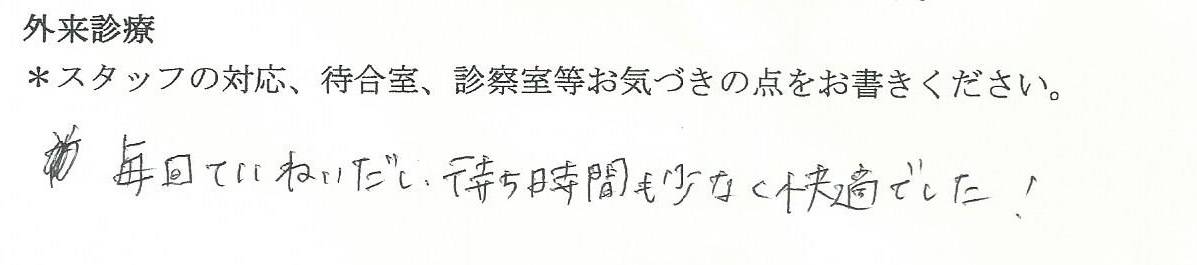 外来診療
＊スタッフの対応、待合室、診察室等お気づきの点をお書きください。
毎回ていねいだし、待ち時間も少なく快適でした！